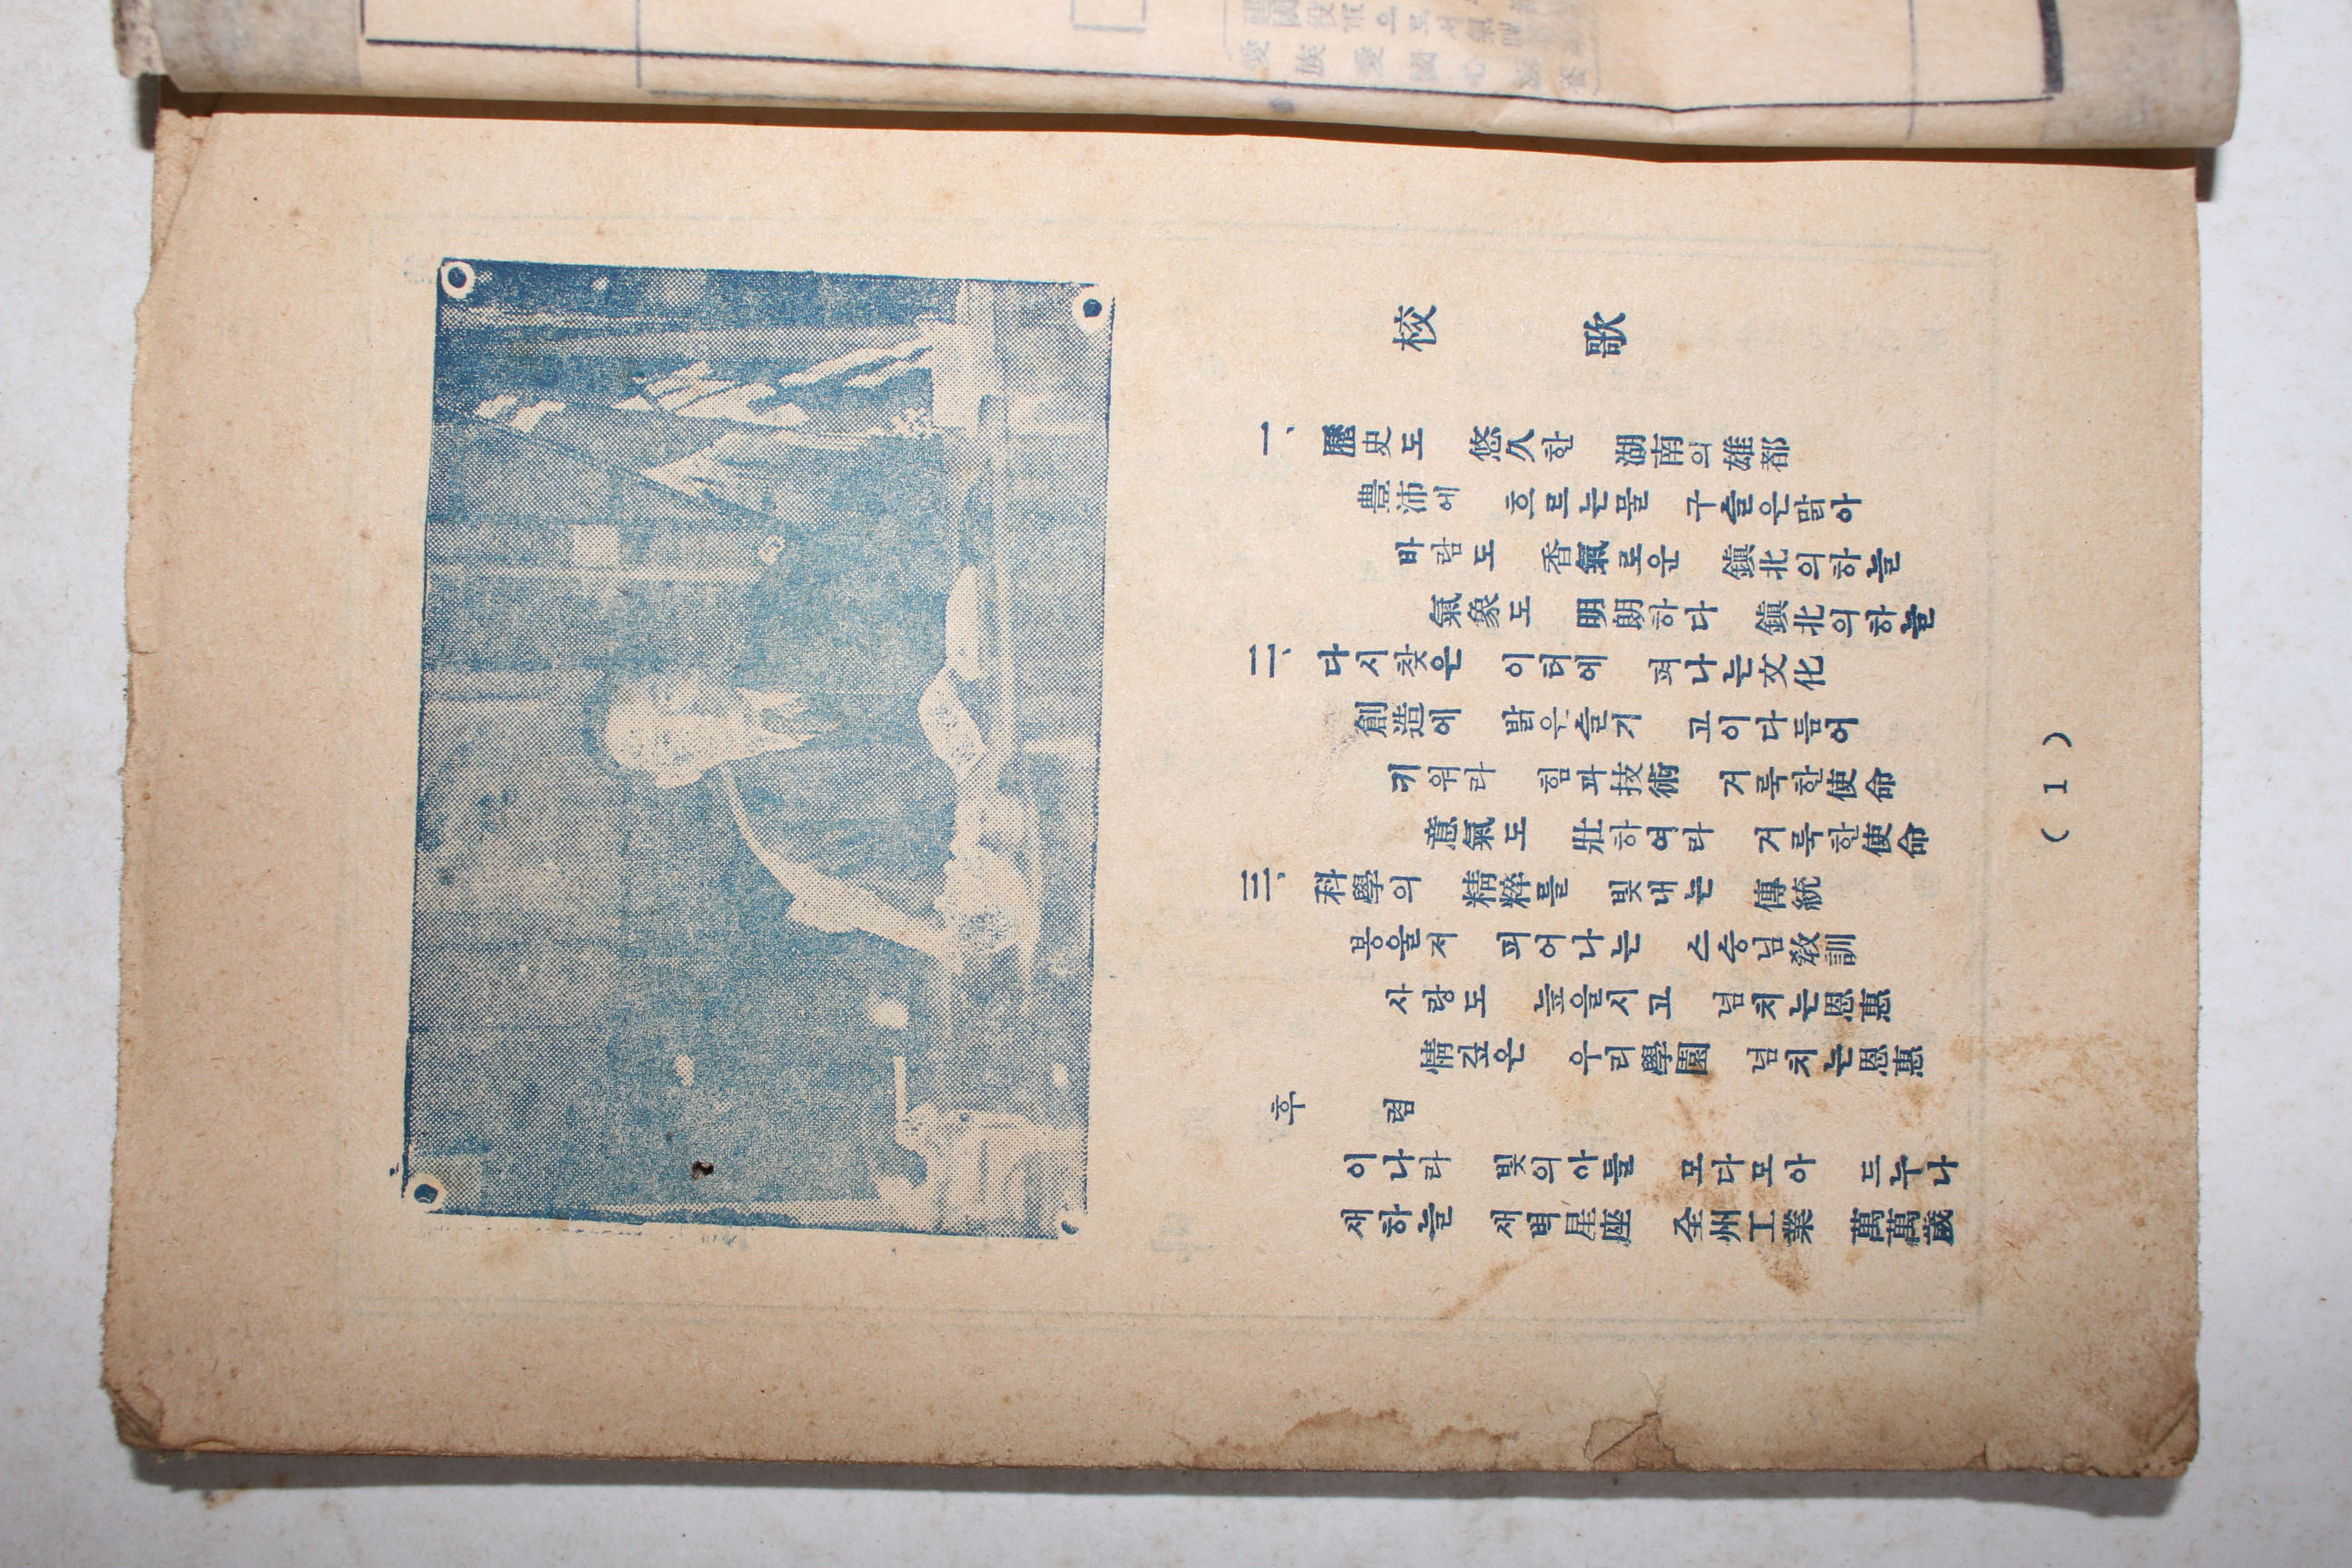 校 歌
一、 歷史도 悠久한 湖南의雄都
豊沛에 흐르는물 구슬은맑아
바람도 香氣로운 鎭北의하늘
氣象도 明朗하다 鎭北의하늘
二、 다시찾은 이터에 펴나는文化
創造에 밝은슬기 고이다듬어
키워라 힘과技術 거룩한使命
意氣도 壯하여라 거룩한使命
三、 科學의 精粹를 빛내는 傳統
봉울저 피어나는 스승님敎訓
사랑도 높을시고 넘치는恩惠
情깊은 우리學園 넘치는恩惠
후 렴
이나라 빛의아들 모다모아 드누나
새하늘 새벽星座 全州工業 萬萬歲
( 1 )